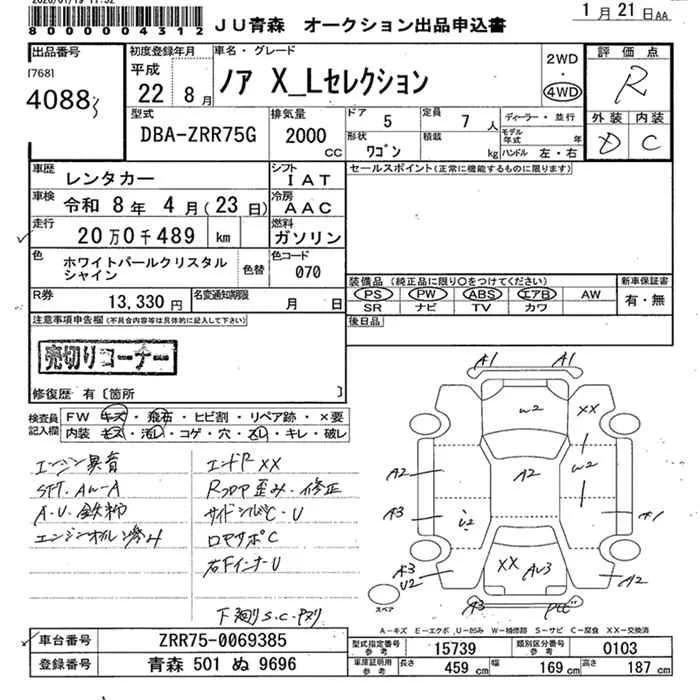 8 0 0 0 0 0 0 4 3 1 2
JU青森 オークション出品申込書
1月21日AA
出品番号
[768]
4088
初度登録年月
平成
22 8月
車名・グレード
ノア X_Lセレクション
2WD
・
4WD
評価点
R
外装 内装
D C
型式
DBA-ZRR75G
排気量
2000
CC
ドア 5
定員 7 人
形状 ワゴン
積載 kg
ディーラー・並行
モデル年式 年
ハンドル 左・右
車歴 レンタカー
シフト IAT
セールスポイント(正常に機能するものに限ります)
車検 令和 8年 4月(23日)
冷房 AAC
走行 20万0千489 km
燃料 ガソリン
色 ホワイトパールクリスタルシャイン
色替
色コード
070
装備品(純正品に限り〇をつけてください)
PS PW ABS エアB AW
SR ナビ TV カワ
新車保証書
有・無
R券 13,330円
名変通知期限 月 日
後日品
注意事項申告欄(不具合内容等は具体的に記入して下さい)
売切りコーナー
修復歴 有〔箇所 〕
検査員記入欄
FW キズ・飛石・ヒビ割・リペア跡・×要
内装 キズ・汚レ・コゲ・穴・スレ・キレ・破レ
エンジン異音
STT.AW-A
A.U.鉄粉
エンジンオイル滲み
エンドP XX
RコアP歪み・修正
サイドシルC・U
ロアサポC
右FインナーU
下廻りS.C.アリ
A1 A1
W2 XX
A2 A2 W2
A3 U2 A1
A3 U2 XX AU3 A2
A3
スペア
A-キズ E-エクボ U-凹み W-補修跡 S-サビ C-腐食 XX-交換済
車台番号 ZRR75-0069385
型式指定番号 参考 15739
類別区分番号 参考 0103
登録番号 青森 501 ぬ 9696
車庫証明用 参考
長さ 459 cm
幅 169 cm
高さ 187 cm